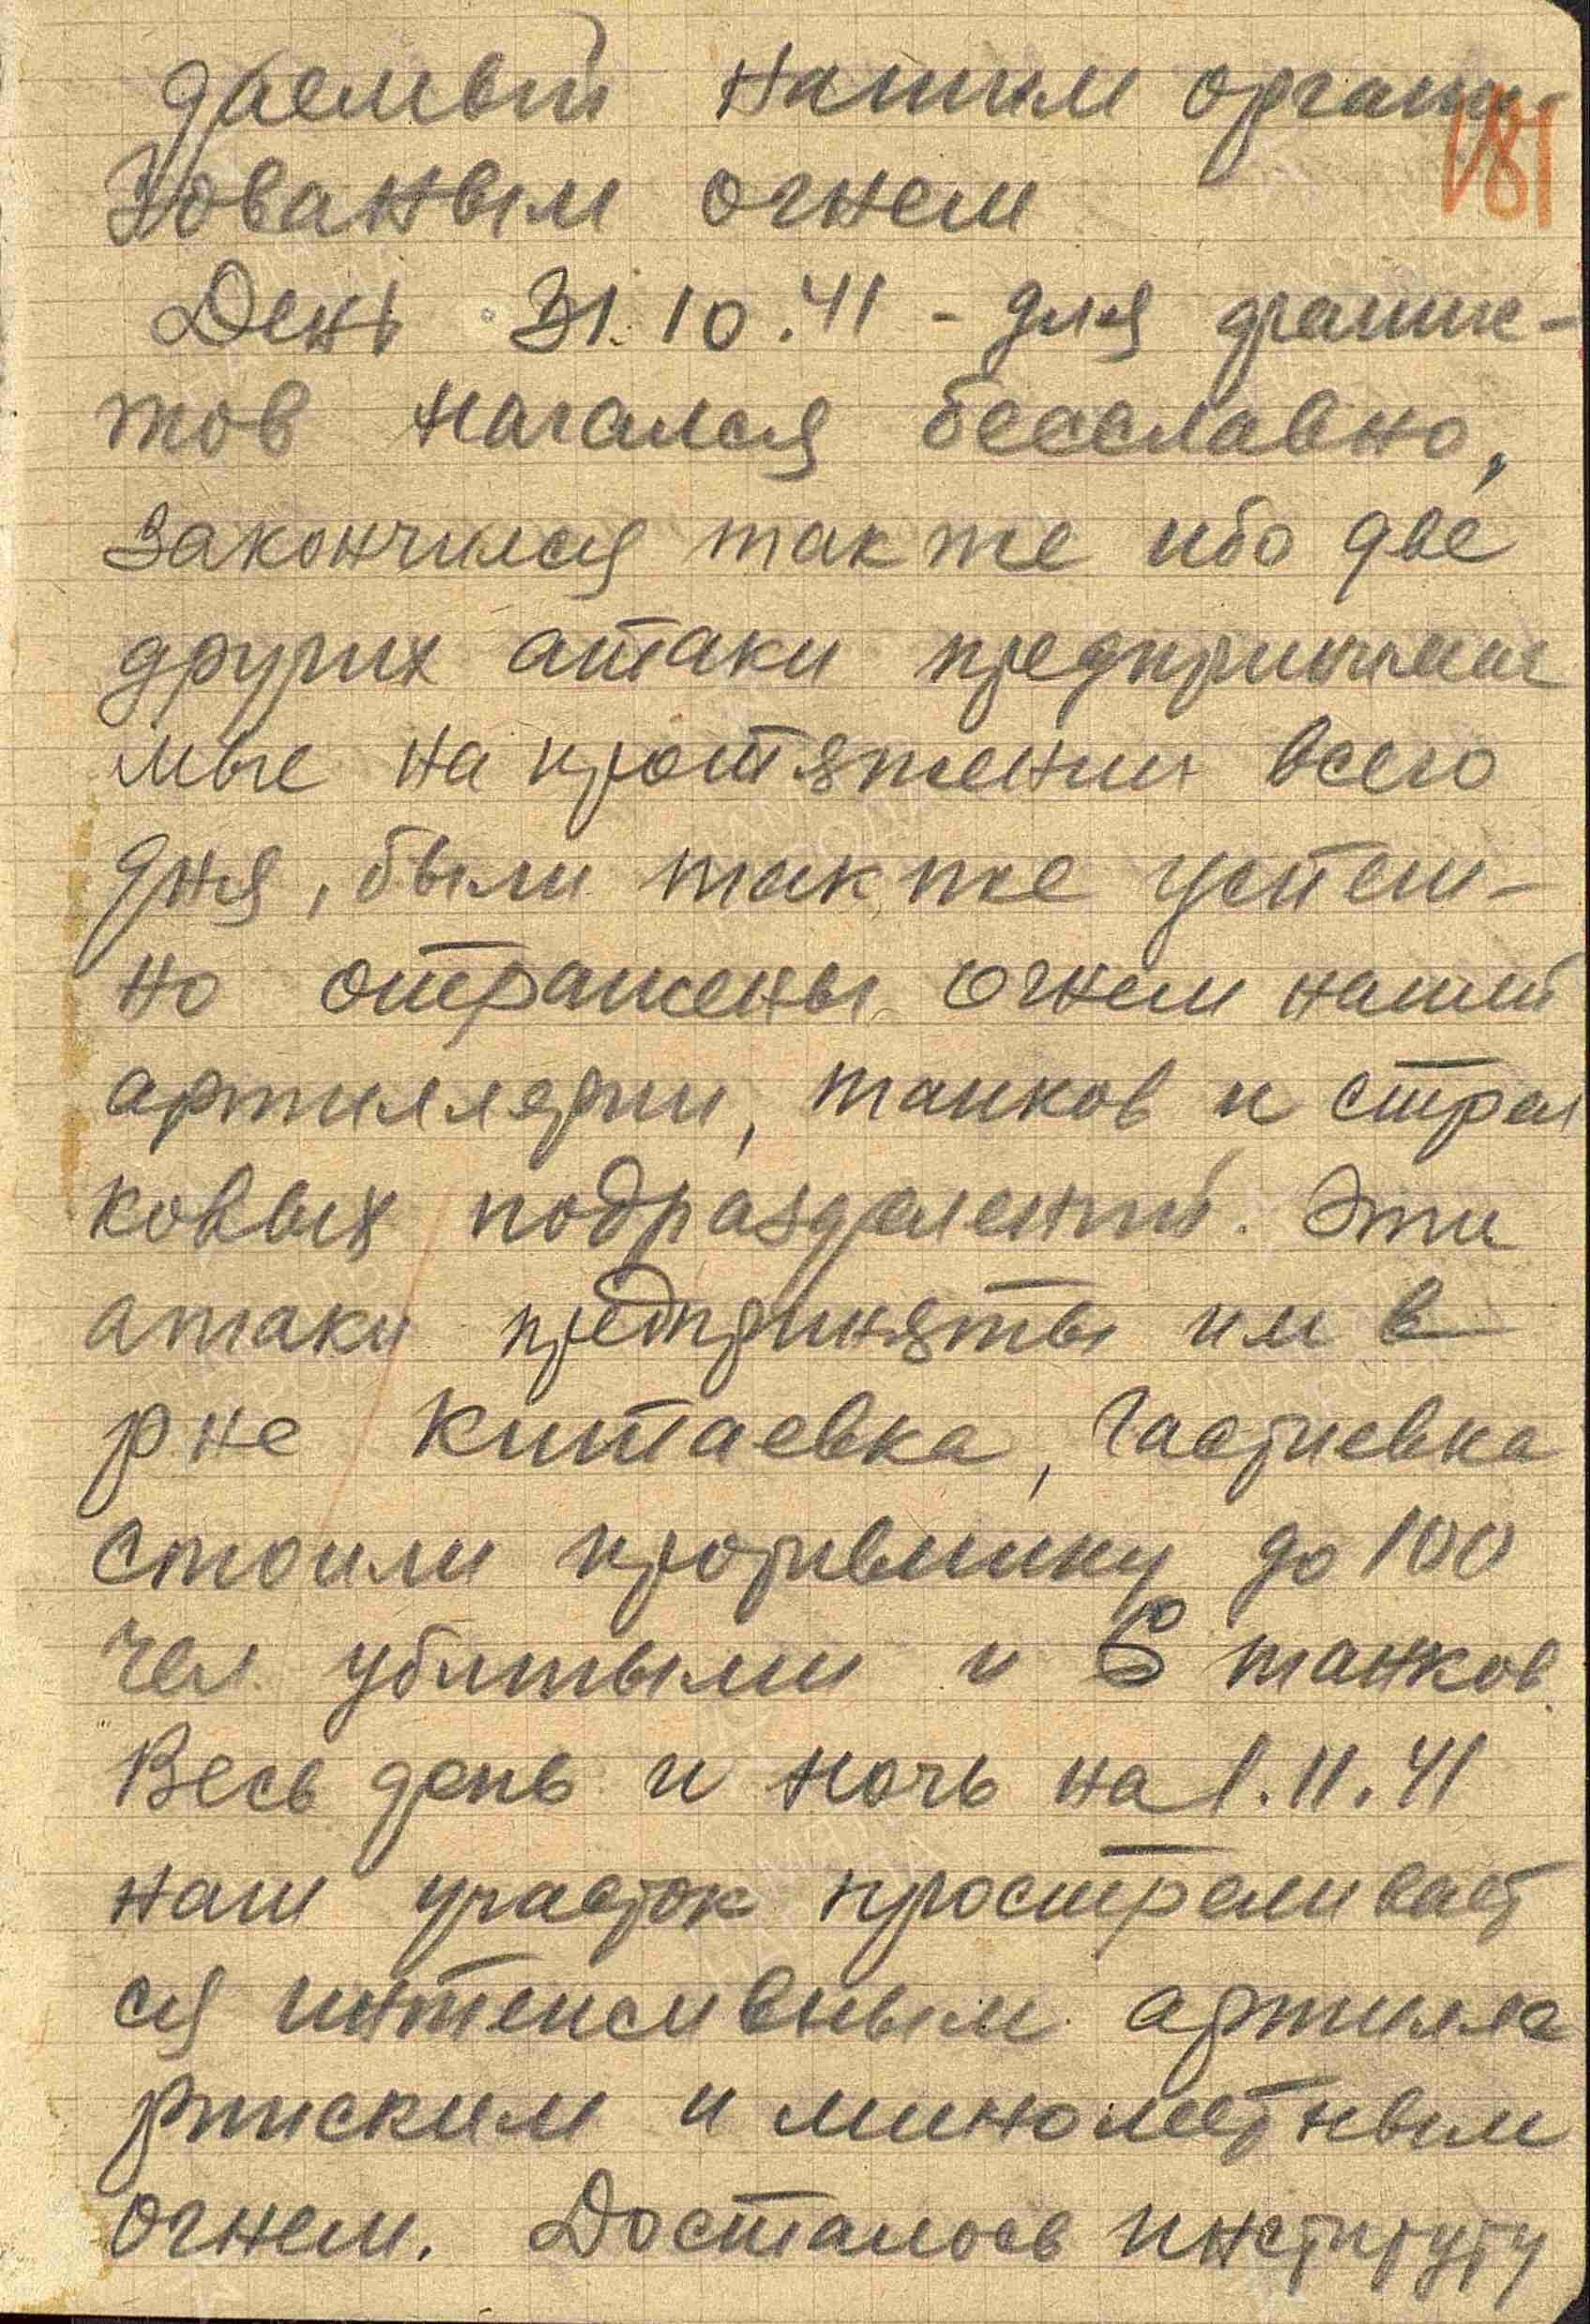 даемый нашим органи-
зованым огнем
181
День 31.10.41 - для фашис-
тов начался бесславно,
закончился также ибо две
других атаки предпринимае
мые на протяжении всего
дня, были также успеш-
но отражены огнем нашей
артиллерии, танков и стрел
ковых подразделений. Эти
атаки предприняты им в
рне Китаевка,
стоили противнику до 100
чел убитыми и 6 танков.
Весь день и ночь на 1.11.41
наш участок простреливает
ся интенсивным артилле
рииским и минометным
огнем. Досталось институту